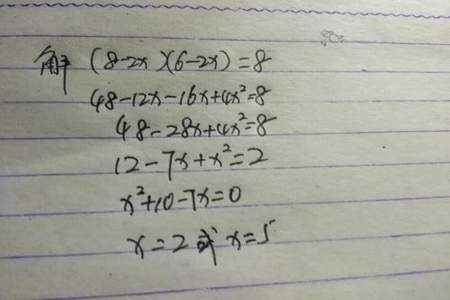 解 (8-2x)(6-2x)=8
48-12x-16x+4x²=8
48-28x+4x²=8
12-7x+x²=2
x²+10-7x=0
x=2或x=5